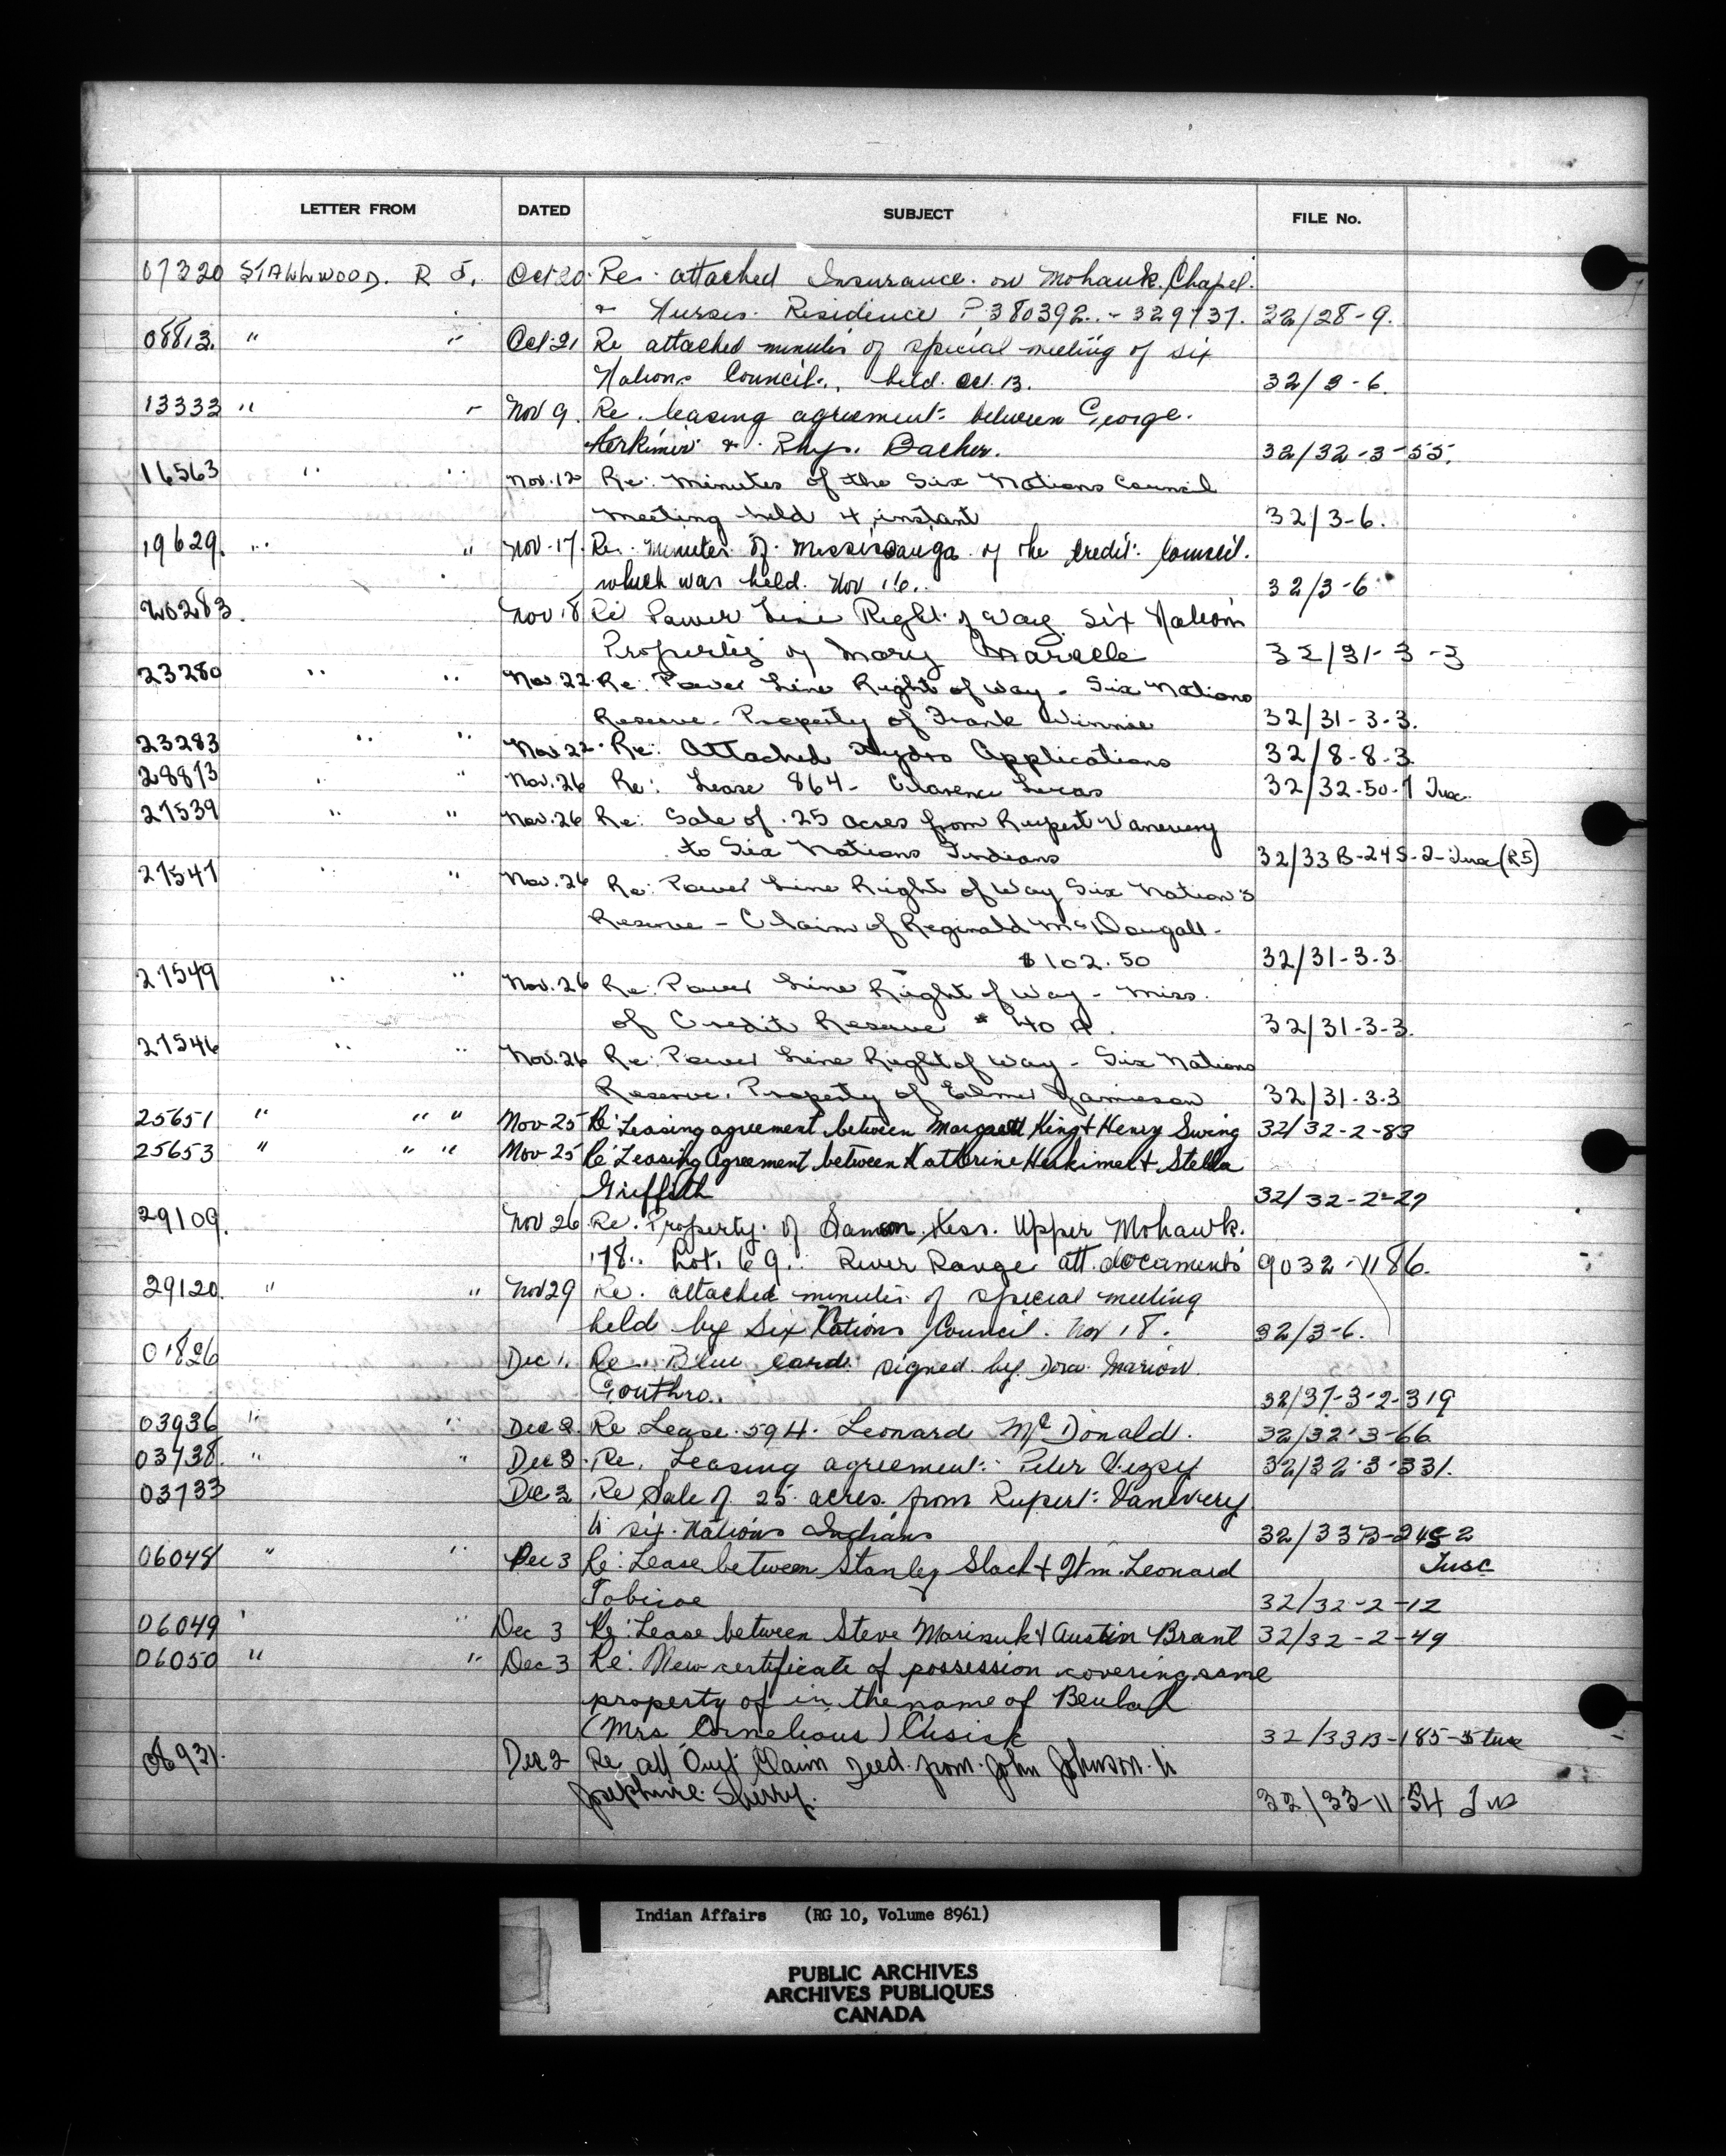 LETTER FROM DATED SUBJECT FILE No.
07320 STALLWOOD. R J. Oct 20 Re. attached Insurance. on Mohawk Chapel.
& Nurses. Residence P 380392. - 329737. 32/28-9.
08813. " " Oct 21 Re attached minutes of special meeting of six
Nations Council., held. Oct. 13. 32/3-6.
13333 " " Nov 9. Re. leasing agreement between George.
Herkimer & Rhys. Bacher. 32/32-3-55.
16563 " " Nov. 12 Re: Minutes of the Six Nations Council
meeting held 4 instant 32/3-6.
19629. " " Nov. 17. Re. Minutes of Mississauga of the Credit Council.
which was held. Nov 16. 32/3-6
20283. Nov 18 Re Power Line Right of Way Six Nations
Properties of Mary Maracle 32/31-3-3
23280 " " Nov. 22. Re: Power Line Right of Way - Six Nations
Reserve. Property of Frank Winnie 32/31-3-3.
23283 " " Nov. 22. Re: Attached Hydro Applications 32/8-8-3
28873 " " Nov. 26 Re: Lease 864 - Clarence Lucas 32/32-50-7 Tusc.
27539 " " Nov. 26 Re: Sale of .25 acres from Rupert Vanevery
to Six Nations Indians 32/33B-245-2-Tusc (R5)
27541 " " Nov. 26 Re: Power Line Right of Way Six Nation's
Reserve - Claim of Reginald McDougall -
$102.50 32/31-3-3
27549 " " Nov. 26 Re: Power Line Right of Way - Miss.
of Credit Reserve # 40 A. 32/31-3-3.
27546 " " Nov. 26 Re: Power Line Right of Way - Six Nations
Reserve. Property of Elmer Jamieson 32/31-3-3
25651 " " " Nov-25 Re: Leasing agreement between Margaret King & Henry Swing 32/32-2-83
25653 " " " Nov-25 Re: Leasing Agreement between Katherine Herkimer & Stella
Griffith 32/32-2-27
29109. Nov 26 Re. Property of Samson Hess. Upper Mohawk.
178. Lot. 69. River Range att. documents 9032-1186.
29120. " " Nov 29 Re. attached minutes of special meeting
held by Six Nations Council. Nov 18. 32/3-6.
01826 Dec 1. Re. Blue card signed by Dora Marion
Gouthro. 32/37-3-2-319
03936 " " Dec 2. Re Lease 594. Leonard McDonald. 32/32-3-66
03738. " " Dec 3. Re. Leasing agreement: Peter Vezsy 32/32-3-331.
03733 Dec 3 Re Sale of 25 acres from Rupert Vanevery
to six Nations Indians 32/33B-245-2
Tusc
06048 " " Dec 3 Re: Lease between Stanley Slack & Wm. Leonard
Tobicoe 32/32-2-12
06049 " " Dec 3 Re: Lease between Steve Marinuk & Austin Brant 32/32-2-49
06050 " " Dec 3 Re: New certificate of possession covering same
property of in the name of Beulah
(Mrs Cornelious) Cusick 32/33B-185-5 tusc
06931. Dec 2 Re att Quit Claim Deed from John Johnson to
Josephine Sherry. 32/33-11-54 Tus
Indian Affairs (RG 10, Volume 8961)
PUBLIC ARCHIVES
ARCHIVES PUBLIQUES
CANADA